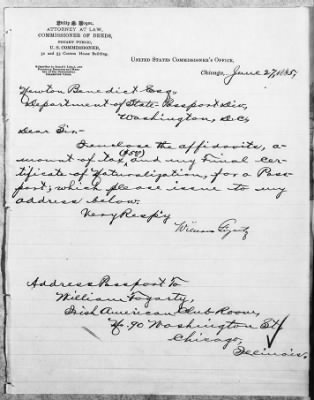 Philip A. Hoyne,
ATTORNEY AT LAW,
COMMISSIONER OF DEEDS,
NOTARY PUBLIC,
U. S. COMMISSIONER,
Custom House Building.
UNITED STATES COMMISSIONER'S OFFICE,
Chicago, June 27, 1885,
Newton Benedict Esq.
Department of State Passport Div,
Washington, D.C.
Dear Sir:-
I enclose the affidavits, a-
mount of tax, and my final cer-
tificate of Naturalization, for a Pass-
port; which please issue to my
address below.
Very Resp'y
William Fogarty
Address Passport To
William Fogarty,
Irish American Club Room,
No. 90 Washington St
Chicago,
Illinois.